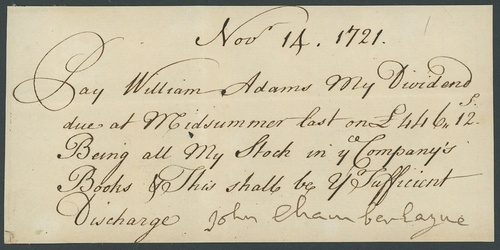 Nov.r 14. 1721.
Pay William Adams My Dividend
due at Midsummer last on £446,, 12.s
Being all My Stock in ye Company's
Books & This shall be Yr Sufficient
Discharge John Chamberlayne